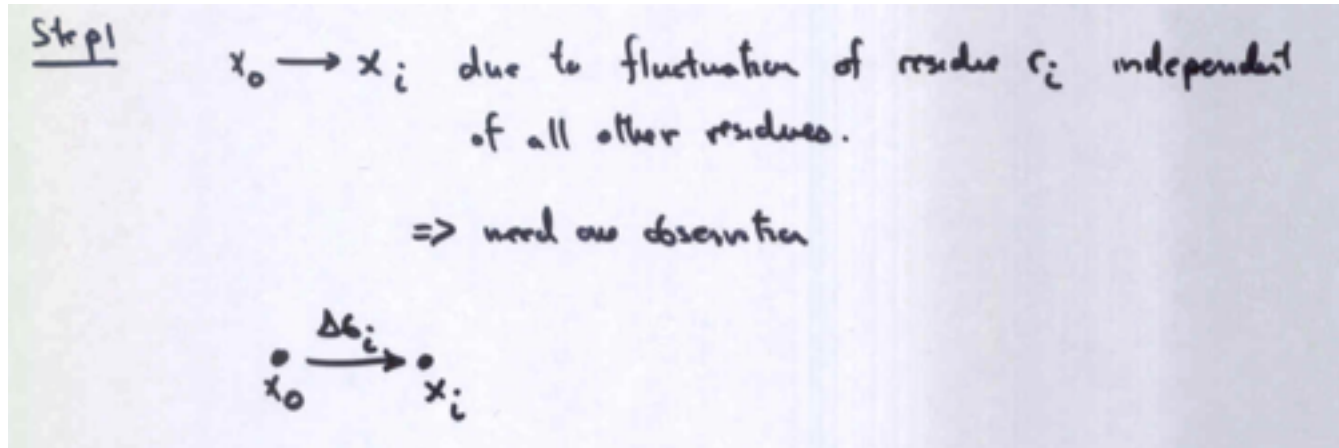 Step 1
x₀ → xᵢ due to fluctuation of residue rᵢ independent
of all other residues.
=> need one observation
ΔGᵢ
x₀ xᵢ